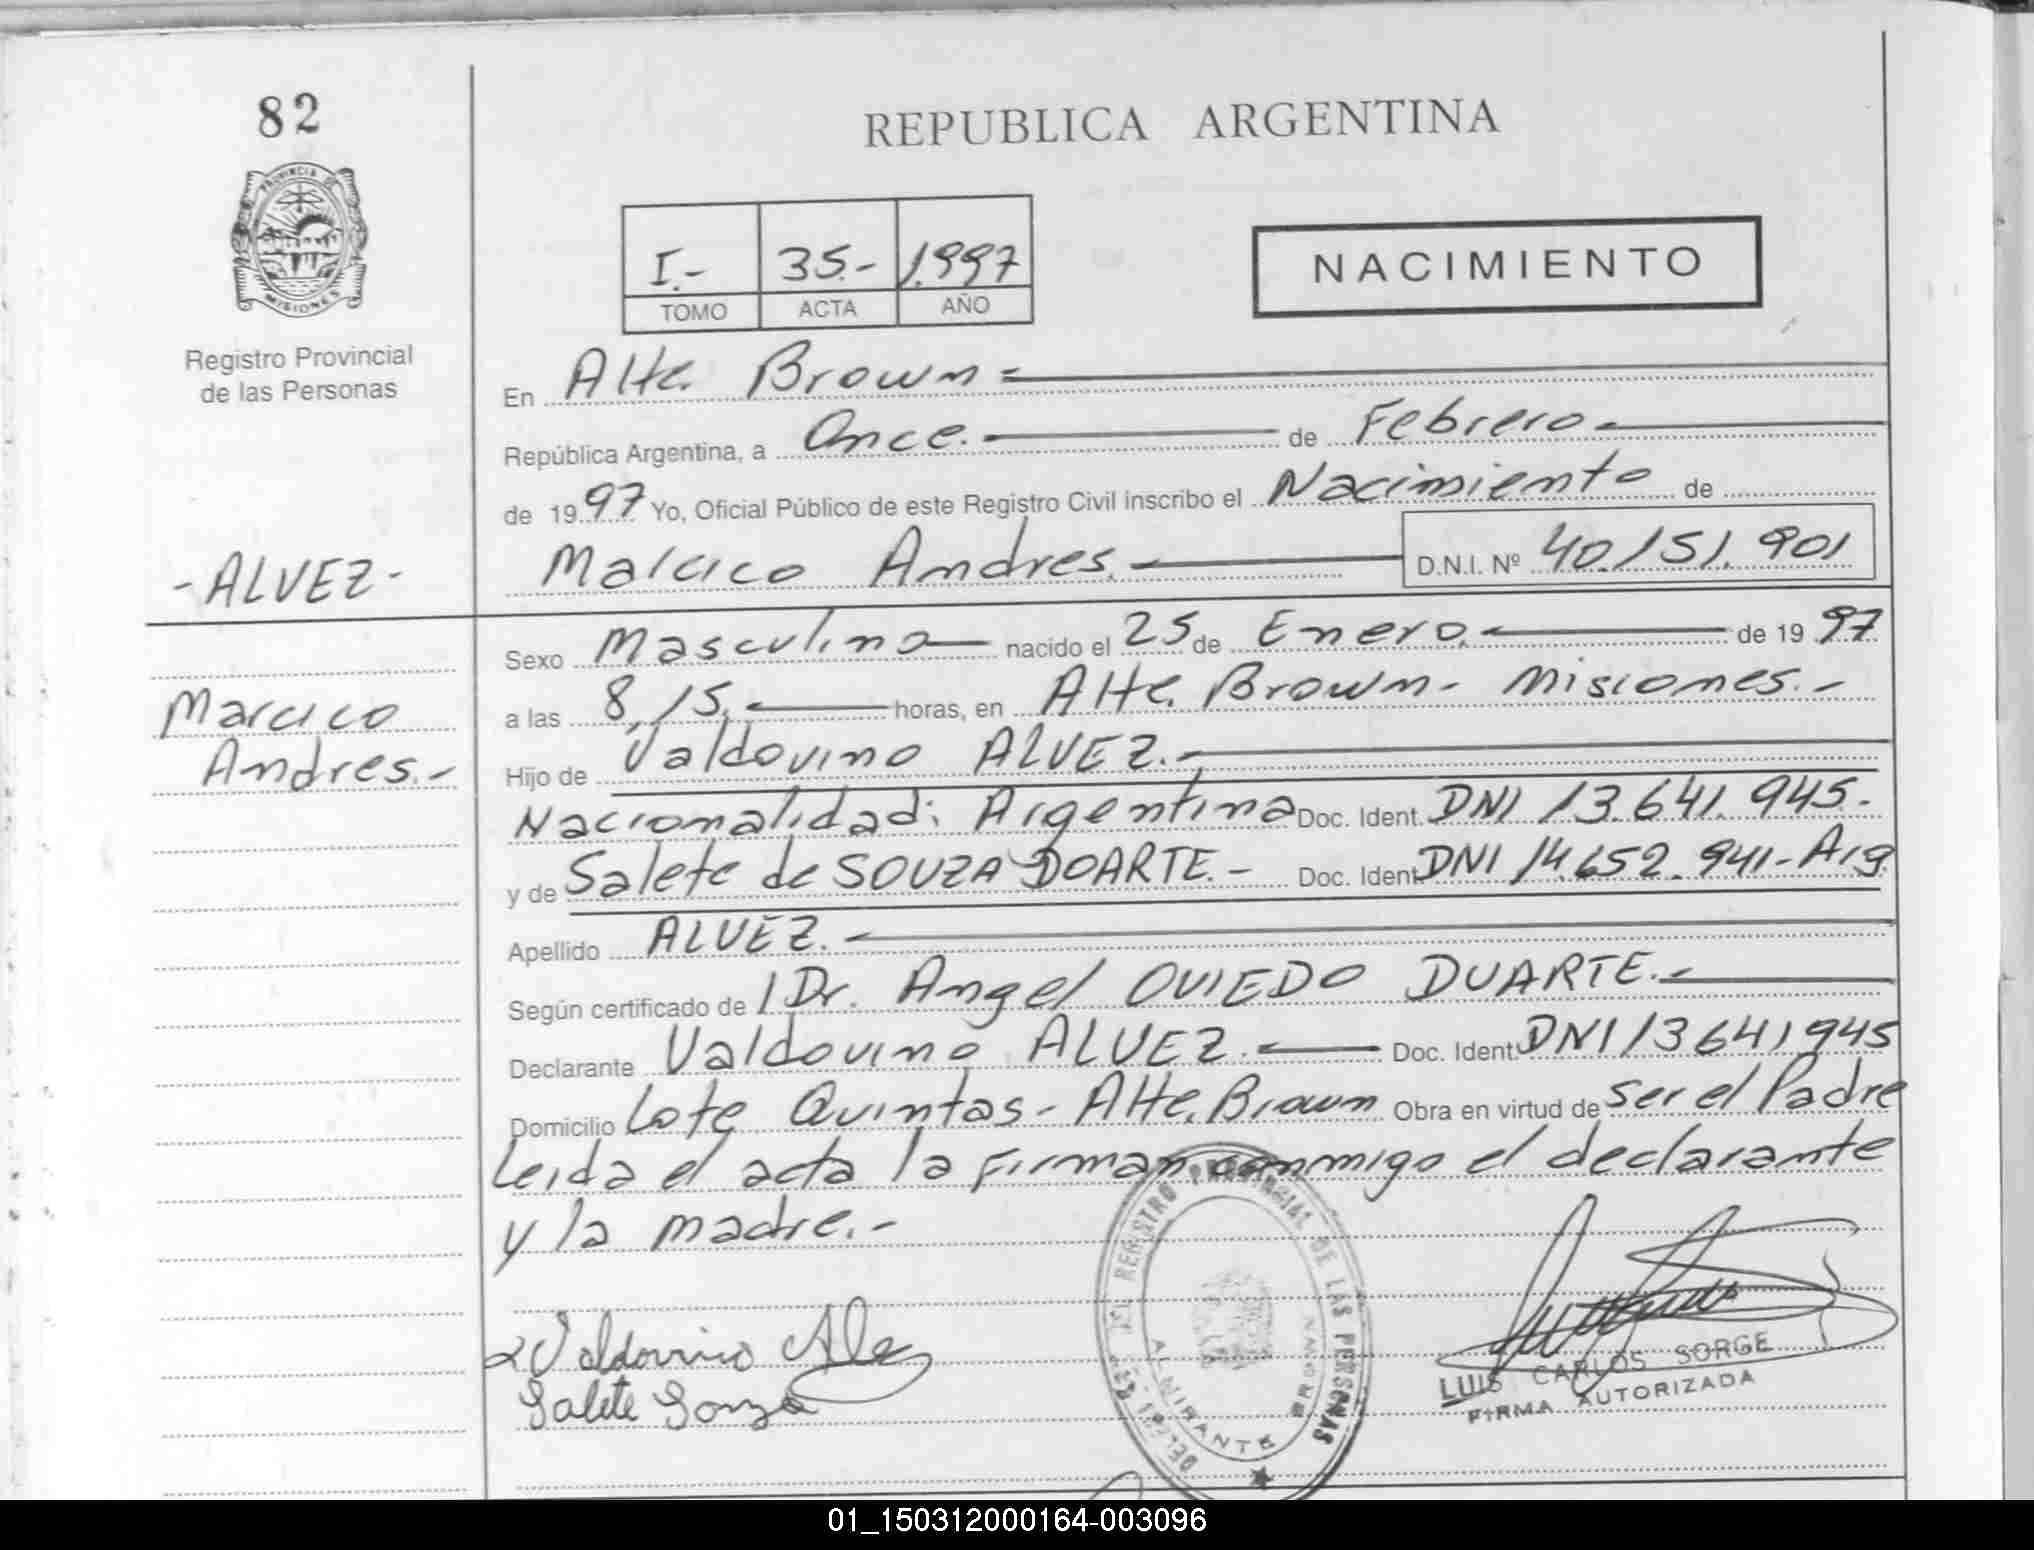 82
PROVINCIA DE
MISIONES
Registro Provincial
de las Personas
REPUBLICA ARGENTINA
I.- 35.- 1.997
TOMO ACTA AÑO
NACIMIENTO
En Alte. Brown=
República Argentina, a Once.- de Febrero-
de 1997 Yo, Oficial Público de este Registro Civil inscribo el Nacimiento de
-ALVEZ-
Marcico Andres.- D.N.I. Nº 40.151.901
Marcico
Andres.-
Sexo Masculino- nacido el 25 de Enero.- de 1997
a las 8,15.- horas, en Alte. Brown- Misiones.-
Hijo de Valdovino ALVEZ.-
Nacionalidad: Argentina Doc. Ident. DNI 13.641.945.-
y de Salete de SOUZA DOARTE.- Doc. Ident. DNI 14.652.941-Arg
Apellido ALVEZ.-
Según certificado de l Dr. Angel OVIEDO DUARTE.-
Declarante Valdovino ALVEZ.- Doc. Ident. DNI 13641945
Domicilio Lote Quintas- Alte. Brown Obra en virtud de ser el Padre
Leida el acta la firman conmigo el declarante
y la madre.-
Valdovino Alvez
Salete Souza
REGISTRO PROVINCIAL DE LAS PERSONAS
ALMIRANTE BROWN
LUIS CARLOS SORGE
FIRMA AUTORIZADA
01_150312000164-003096